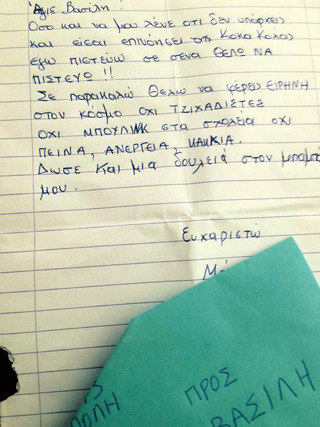 Άγιε Βασίλη!
Οσο και να μου λένε οτι δεν υπάρχεις
και είσαι επινόησει της Κοκα Κολας
εγω πιστεύω σε σενα ΘΕΛΩ ΝΑ
ΠΙΣΤΕΥΩ !!
Σε παρακαλώ Θελω να φέρεις ΕΙΡΗΝΗ
στον κόσμο ΟΧΙ ΤΖΙΧΑΔΙΣΤΕΣ
ΟΧΙ ΜΠΟΥΛΙΝΚ στα σχολεία οχι
ΠΕΙΝΑ, ΑΝΕΡΓΕΙΑ, ΚΑΚΚΙΑ.
Δωσε και μια δουλειά στον μπαμπά
μου.
Ευχαριστώ
ΠΡΟΣ
ΒΑΣΙΛΗ